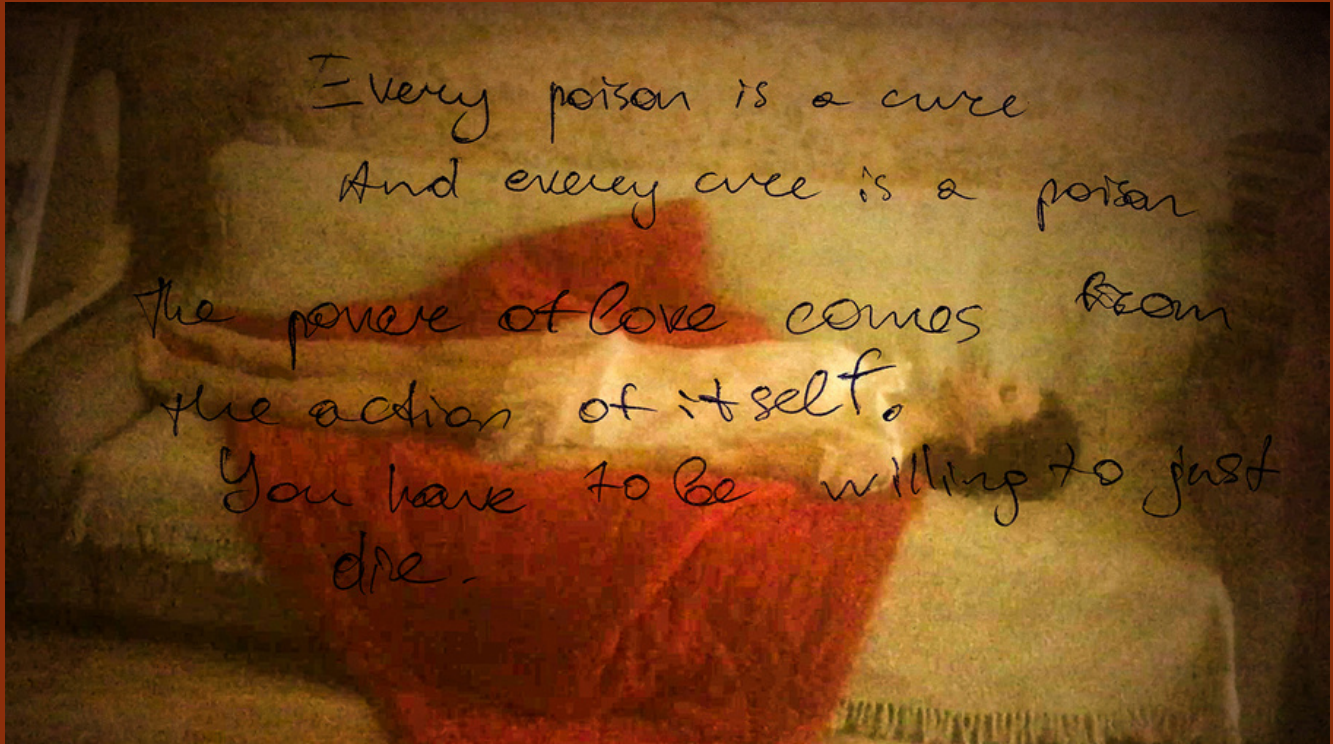 Every poison is a cure
And every cure is a poison
The power of love comes from
the action of itself.
You have to be willing to just
die.